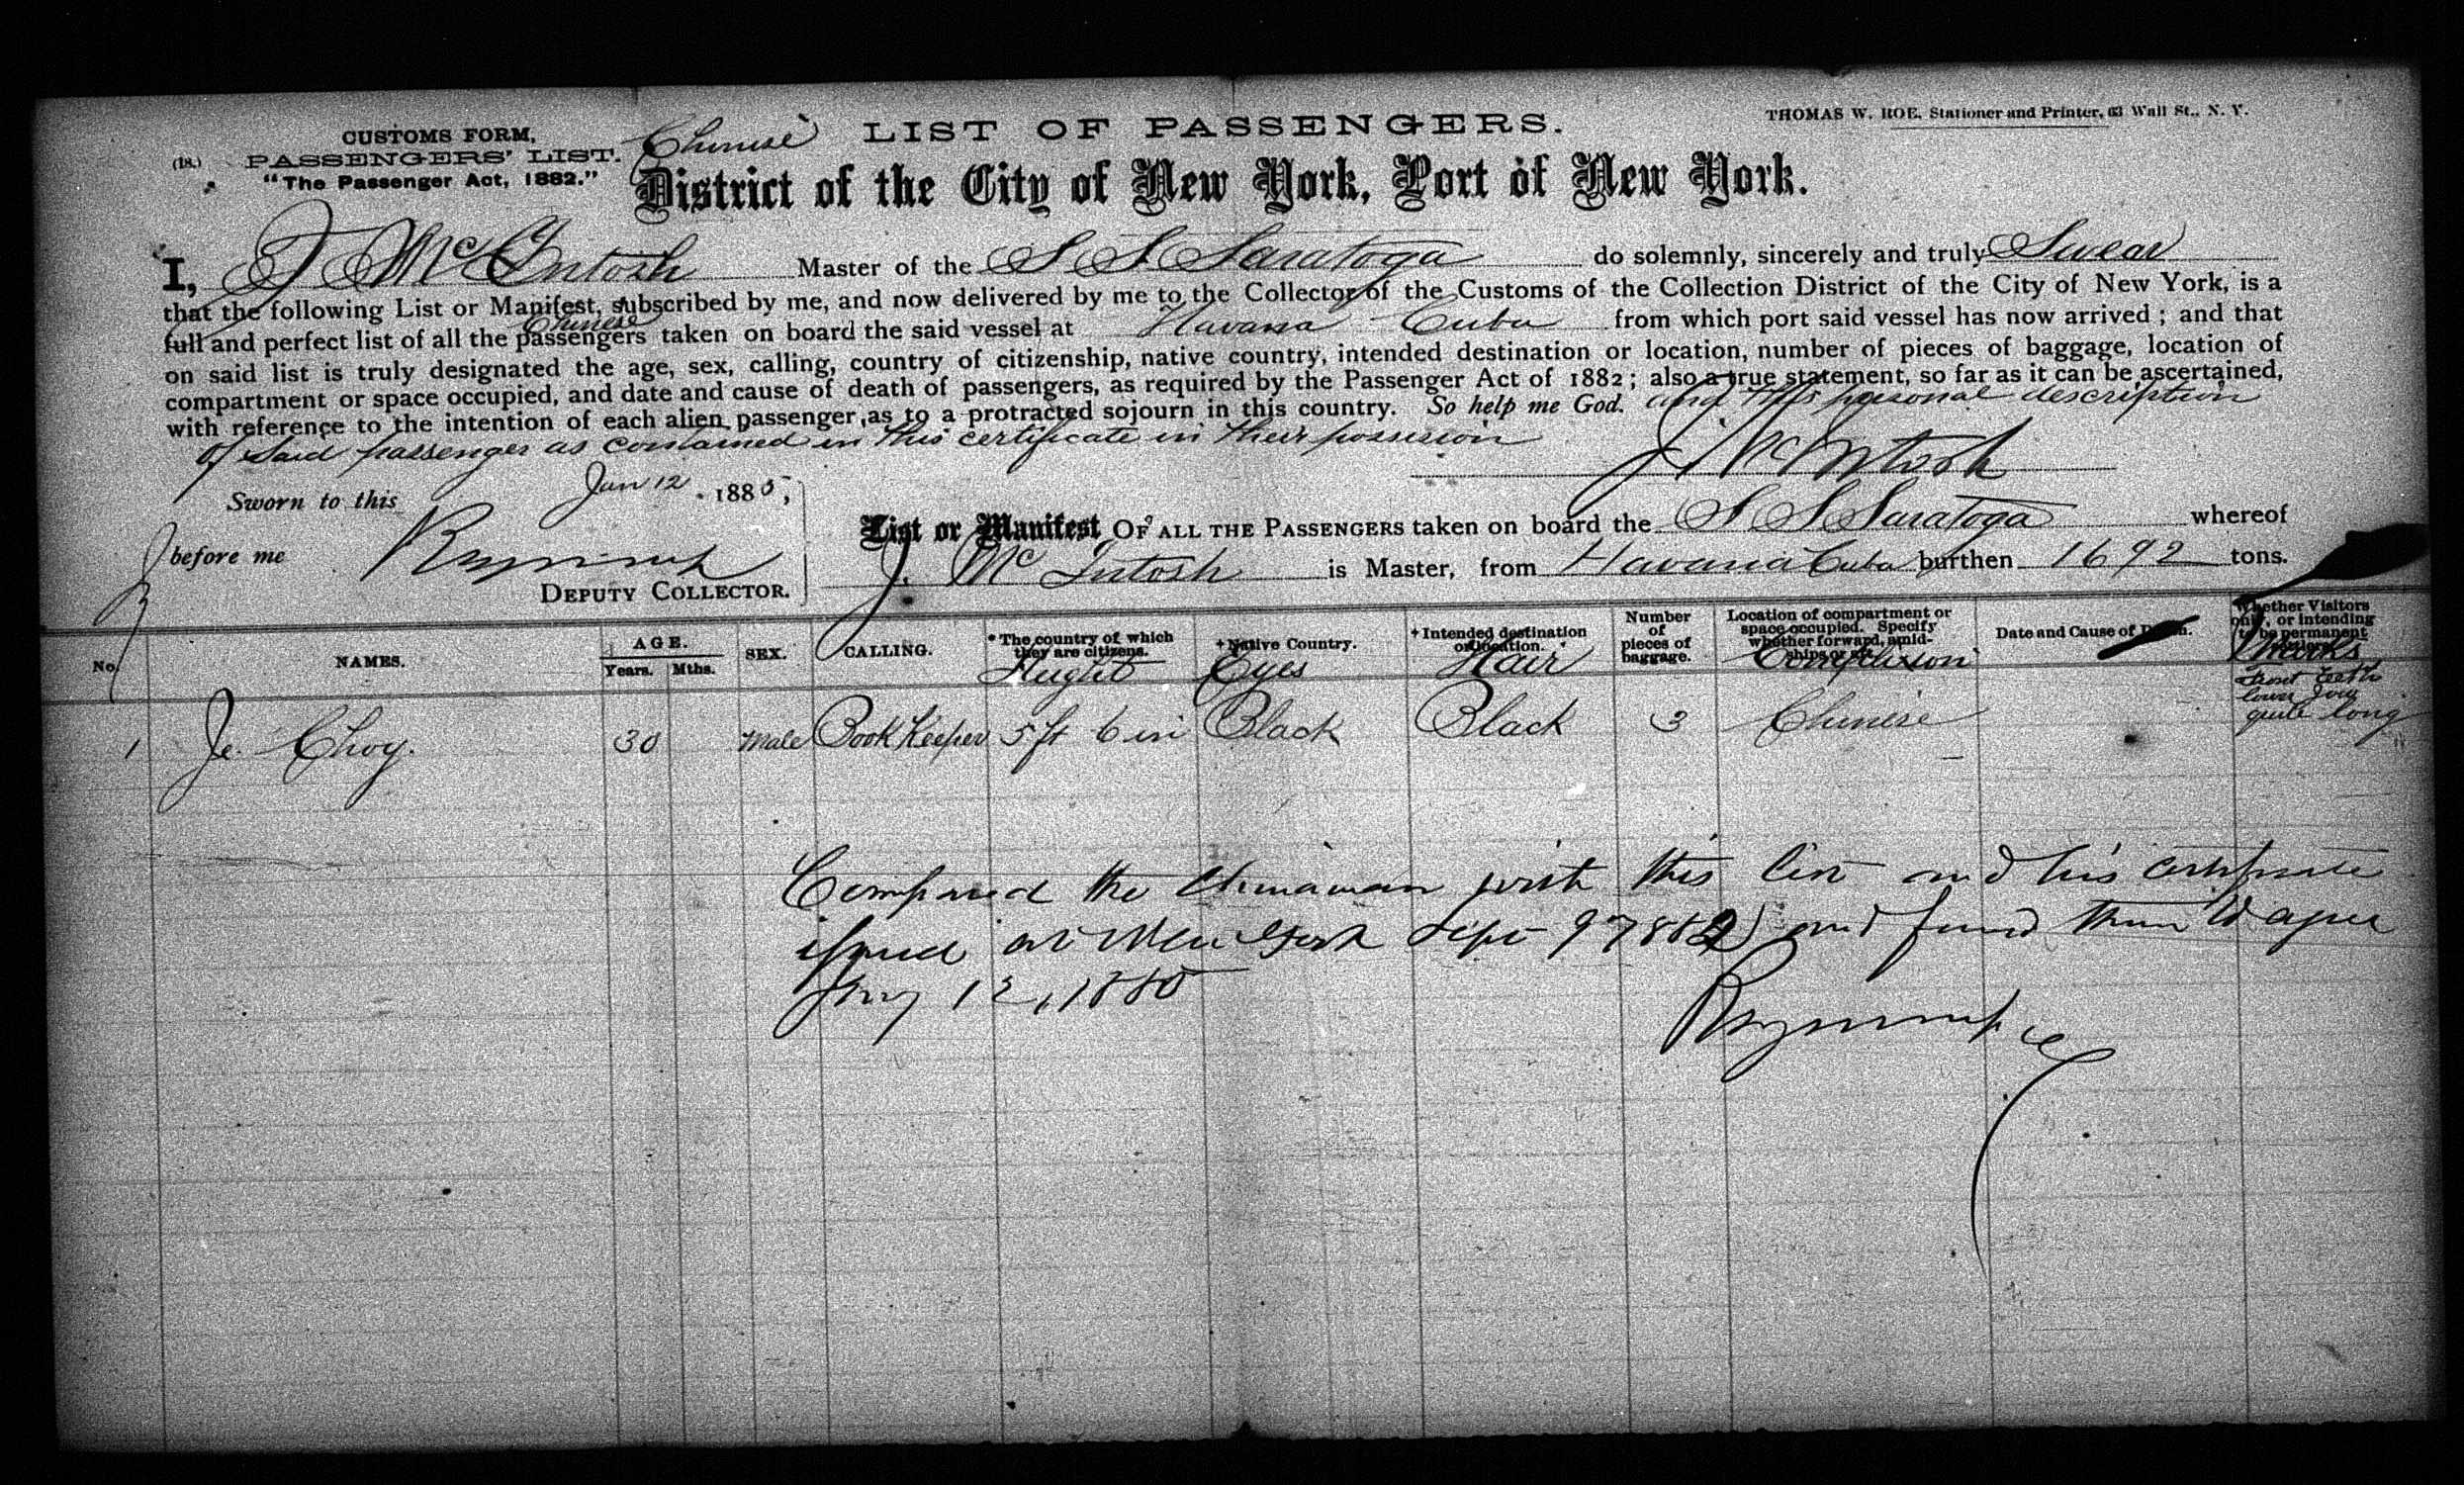 CUSTOMS FORM,
(18.) PASSENGERS' LIST.
"The Passenger Act, 1882."
Chinese LIST OF PASSENGERS.
THOMAS W. ROE, Stationer and Printer, 63 Wall St., N. Y.
District of the City of New York, Port of New York.
I, J McIntosh Master of the S S Saratoga do solemnly, sincerely and truly Swear
that the following List or Manifest, subscribed by me, and now delivered by me to the Collector of the Customs of the Collection District of the City of New York, is a
full and perfect list of all the Chinese passengers taken on board the said vessel at Havana Cuba from which port said vessel has now arrived; and that
on said list is truly designated the age, sex, calling, country of citizenship, native country, intended destination or location, number of pieces of baggage, location of
compartment or space occupied, and date and cause of death of passengers, as required by the Passenger Act of 1882; also a true statement, so far as it can be ascertained,
with reference to the intention of each alien passenger, as to a protracted sojourn in this country. So help me God. and this personal description
of Said passenger as contained in this certificate in their possession
J McIntosh
Sworn to this Jan 12, 1885,
before me
DEPUTY COLLECTOR.
List or Manifest OF ALL THE PASSENGERS taken on board the S S Saratoga whereof
J. McIntosh is Master, from Havana Cuba burthen 1692 tons.
No. NAMES. AGE. Years. Mths. SEX. CALLING. *The country of which they are citizens. Height †Native Country. Eyes †Intended destination or location. Hair Number of pieces of baggage. Location of compartment or space occupied. Specify whether forward, amidships or aft. Complexion Date and Cause of Death. Whether Visitors only, or intending to be permanent Marks
1 Je Choy. 30 Male Book Keeper 5 ft 6 in Black Black 3 Chinese Front teeth lower Jaw quite long
Compared the Chinaman with this list and his certificate
issued at New York Sept 9 1882 and found them to agree
Jany 12, 1885